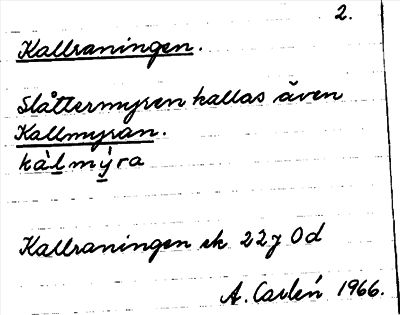 2.
Kallraningen.
Slåttermyren kallas även
Kallmyran.
kàlmýra
Kallraningen ek 22j Od
A. Carlén 1966.